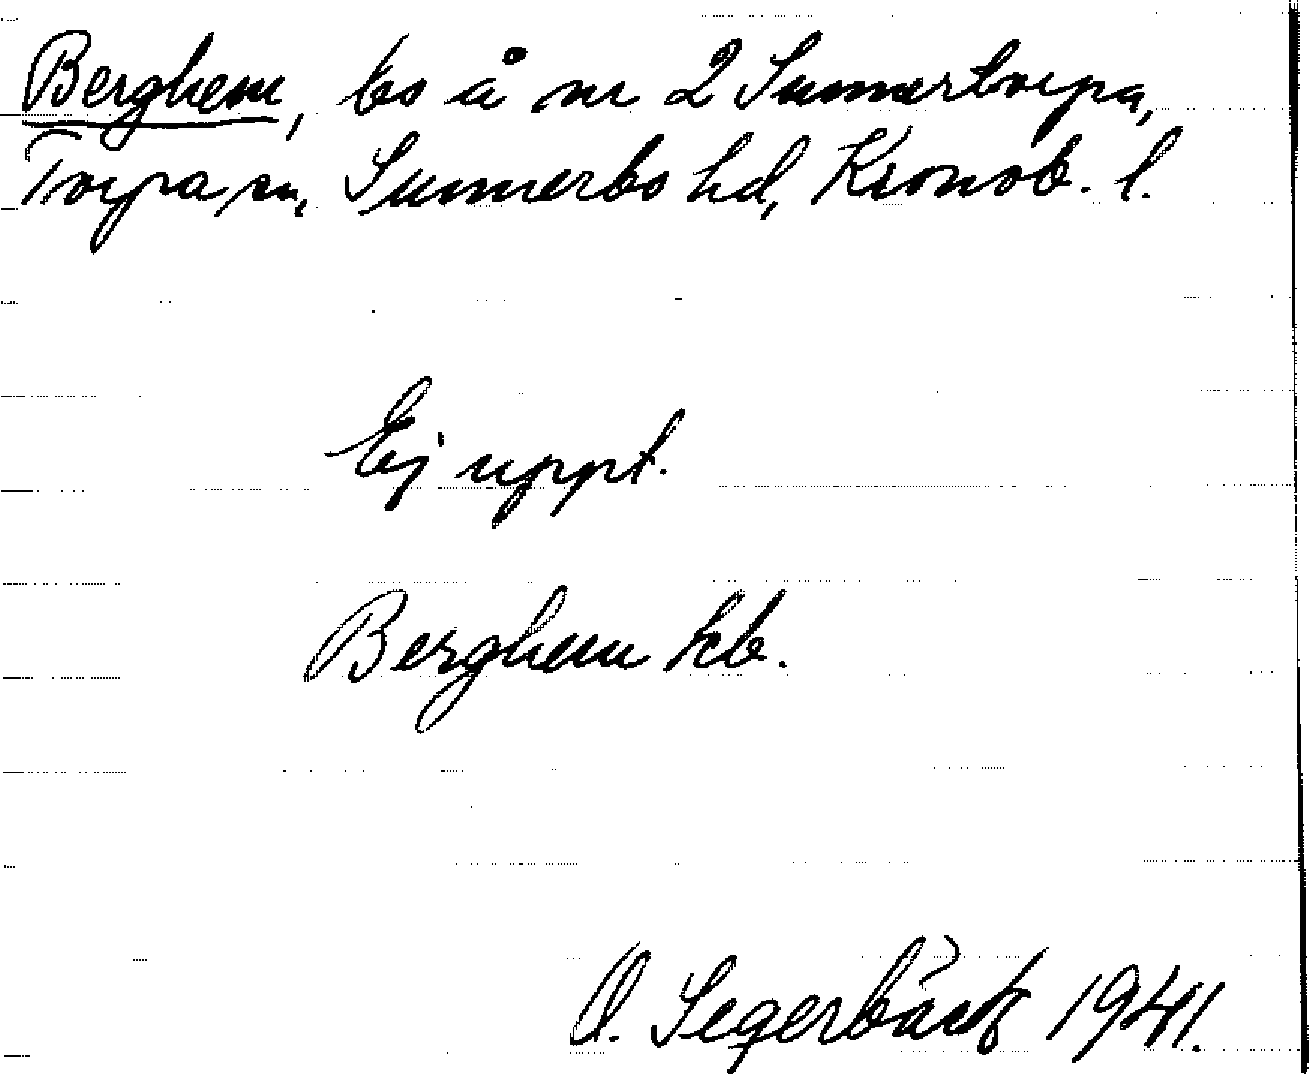 Berghem, bs å nr 2 Sunnertorpa,
Torpa sn, Sunnerbo hd, Kronob. l.
Ej uppt.
Berghem kb.
O. Segerbäck 1941.